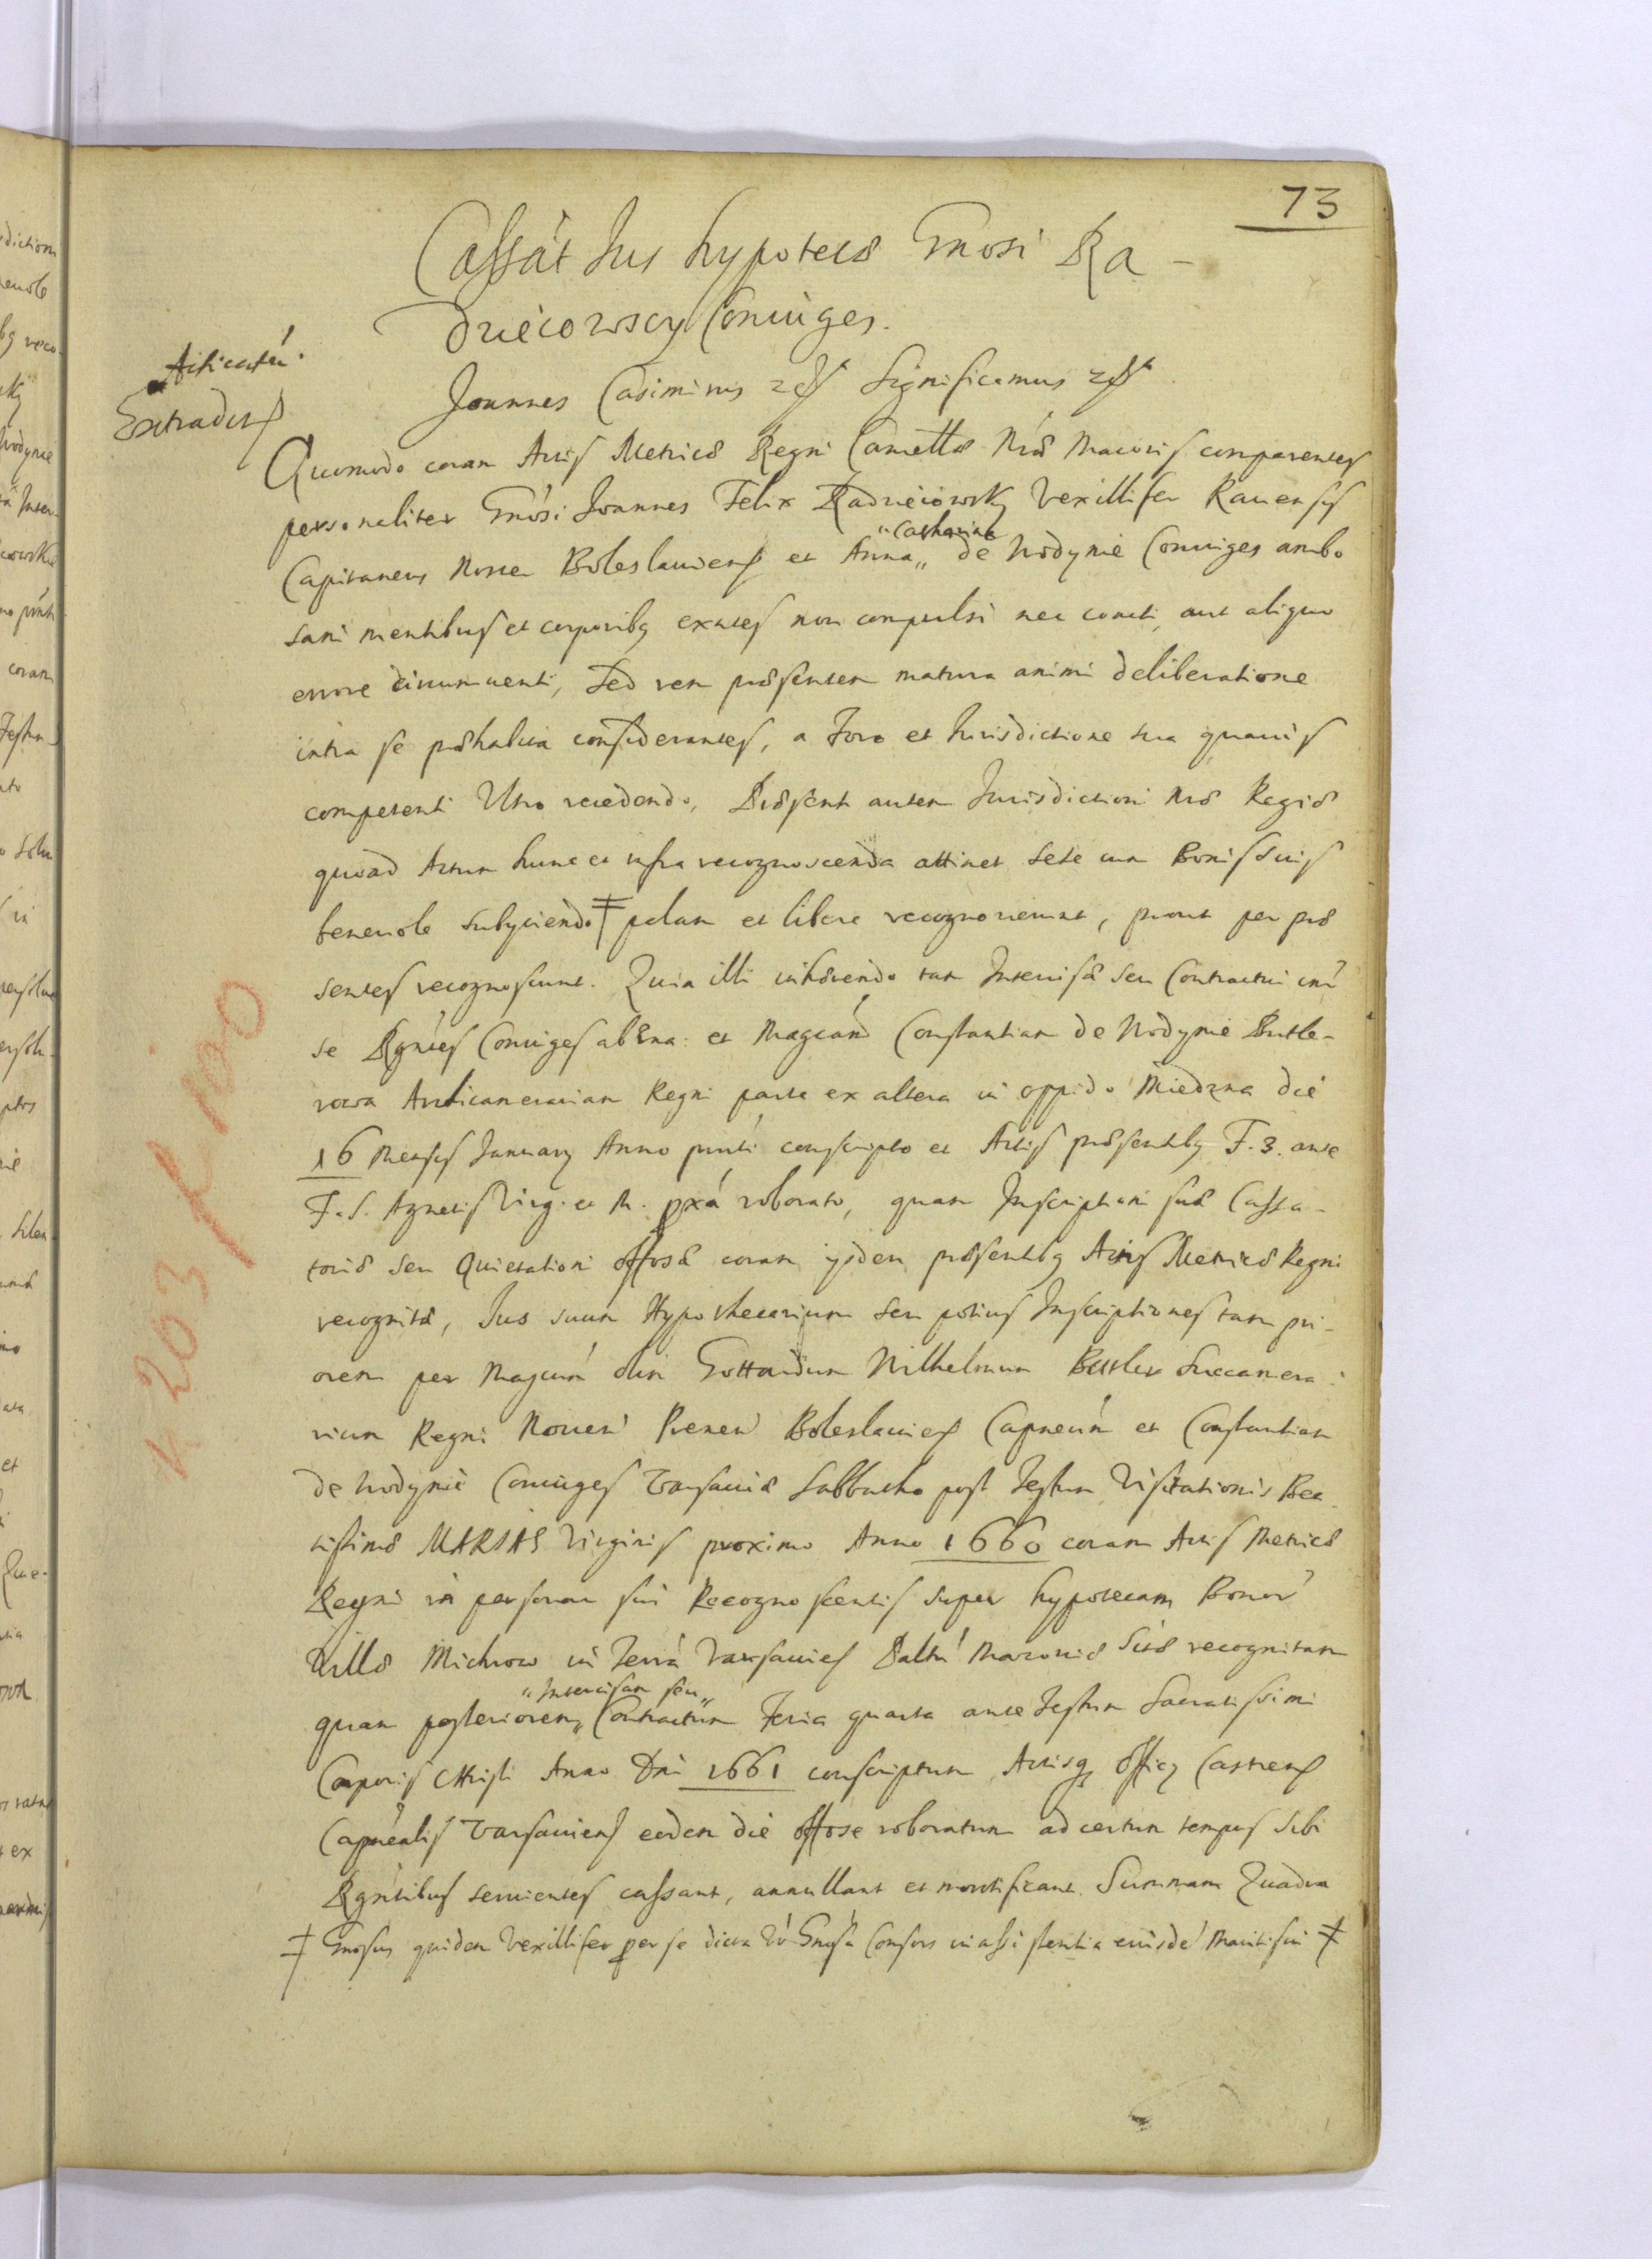 73
Cassat Jus hypotecæ Gnosi Ra-
dziecowscy Coniuges.
Acticatū.
Extradit
Joannes Casimirus etc Significamus etc
Quomodo coram Actis Metricæ Regni Cancellæ Nræ Maioris comparentes
personaliter Gnosi Joannes Felix Radzieiowsky Vexillifer Rauensis
"Catharina
Capitaneus Novæ Boleslauiens et Anna„ de Wodynie Coniuges ambo
sani mentibus et corporibq exntes non compulsi nec coacti, aut aliquo
errore circumuenti, Sed rem præsentem matura animi deliberatione
intra se præhabita considerantes, a Foro et Jurisdictione sua quauis
competenti Utro recedendo, Præsenti autem Jurisdictioni Nræ Regiæ
quoad Actum hunc et infra recognoscenda attinet sese cum Bonis suis
beneuole subyciendo ǂ palam et libere recognouerunt, prout per præ
sentes recognoscunt. Quia illi inhærendo tam Intercisæ seu Contractui int̄
se Rgntes Coniuges ab una: et Magcam Constantiam de Wodynie Butle-
rowa Archicamerariam Regni parte ex altera in oppido Miedzna die
16 Mensis January Anno pnti conscripto et Actis præsentibq F. 3. ante
F. S. Agnetis Virg. et M. pxa roborato, quam Inscriptioni suæ Cassa-
toriæ seu Quietationi offosæ coram ysdem præsentibq Actis Metricæ Regni
recognitæ, Jus suum Hypothecarium seu potius Inscriptiones tam pri-
orem per Magcum olim Gottardum Wilhelmum Butler Succamera-
rium Regni Noven Prenen Boleslauies Capneum et Constantiam
de Wodynie Coniuges Varsauiæ Sabbatho post Festum Visitationis Bea-
tissimæ MARIAE Virginis proximo Anno 1660 coram Actis Metricæ
Regni in personam sui Recognoscentis super hypotecam Bonor
Villæ Michrow in Terra Varsauies Palttu Mazouiæ Sitæ recognitam
"Intercisam seu„
quam posteriorem„ Contractum Feria quarta ante Festum Sacratissimi
Corporis Christi Anno Dni 1661 conscriptum Actisq Officy Castrens
Capnealis Varsauiens eodem die offose roboratum ad certum tempus sibi
Rgntibus seruientes cassant, annullant et mortificant. Summam Quadra
ǂ Gnosus quidem Vexillifer per se dicta vo Gnosa Consors in assistentia eiusde Mariti sui ǂ
K 203 f 100